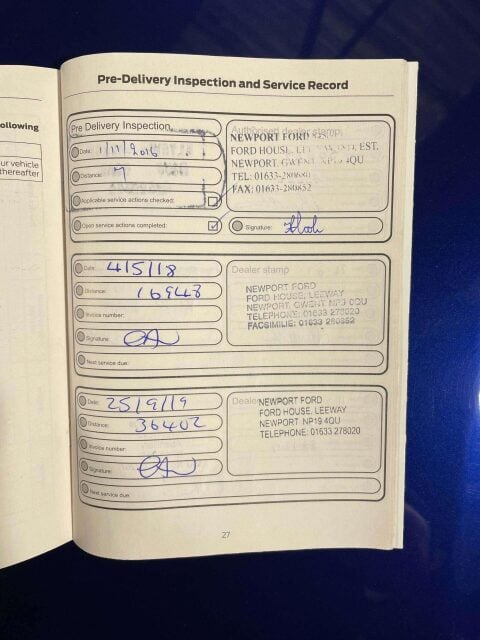 Pre-Delivery Inspection and Service Record
ollowing
ur vehicle
hereafter
Pre Delivery Inspection
Date: 1/11/2016
Distance: 7
Applicable service actions checked:
Open service actions completed:
Authorised dealer stamp
NEWPORT FORD
FORD HOUSE, EST.
NEWPORT, GWENT, 4QU
TEL: 01633-280680
FAX: 01633-280852
Signature:
Date: 4/5/18
Distance: 16948
Invoice number:
Signature:
Next service due:
Dealer stamp
NEWPORT FORD
FORD HOUSE, LEEWAY
NEWPORT, GWENT
TELEPHONE: 01633 278020
FACSIMILIE: 01633 280852
Date: 25/9/19
Distance: 36402
Invoice number:
Signature:
Next service due:
Dealer
NEWPORT FORD
FORD HOUSE, LEEWAY
NEWPORT NP19 4QU
TELEPHONE: 01633 278020
27